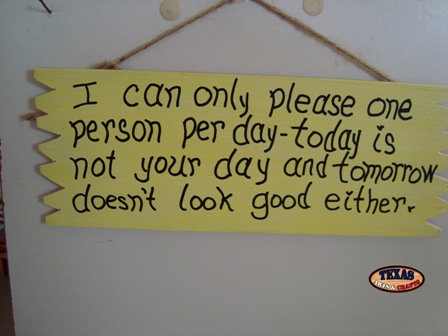 I can only please one
person per day-today is
not your day and tomorrow
doesn't look good either.
TEXAS
ARTS & CRAFTS